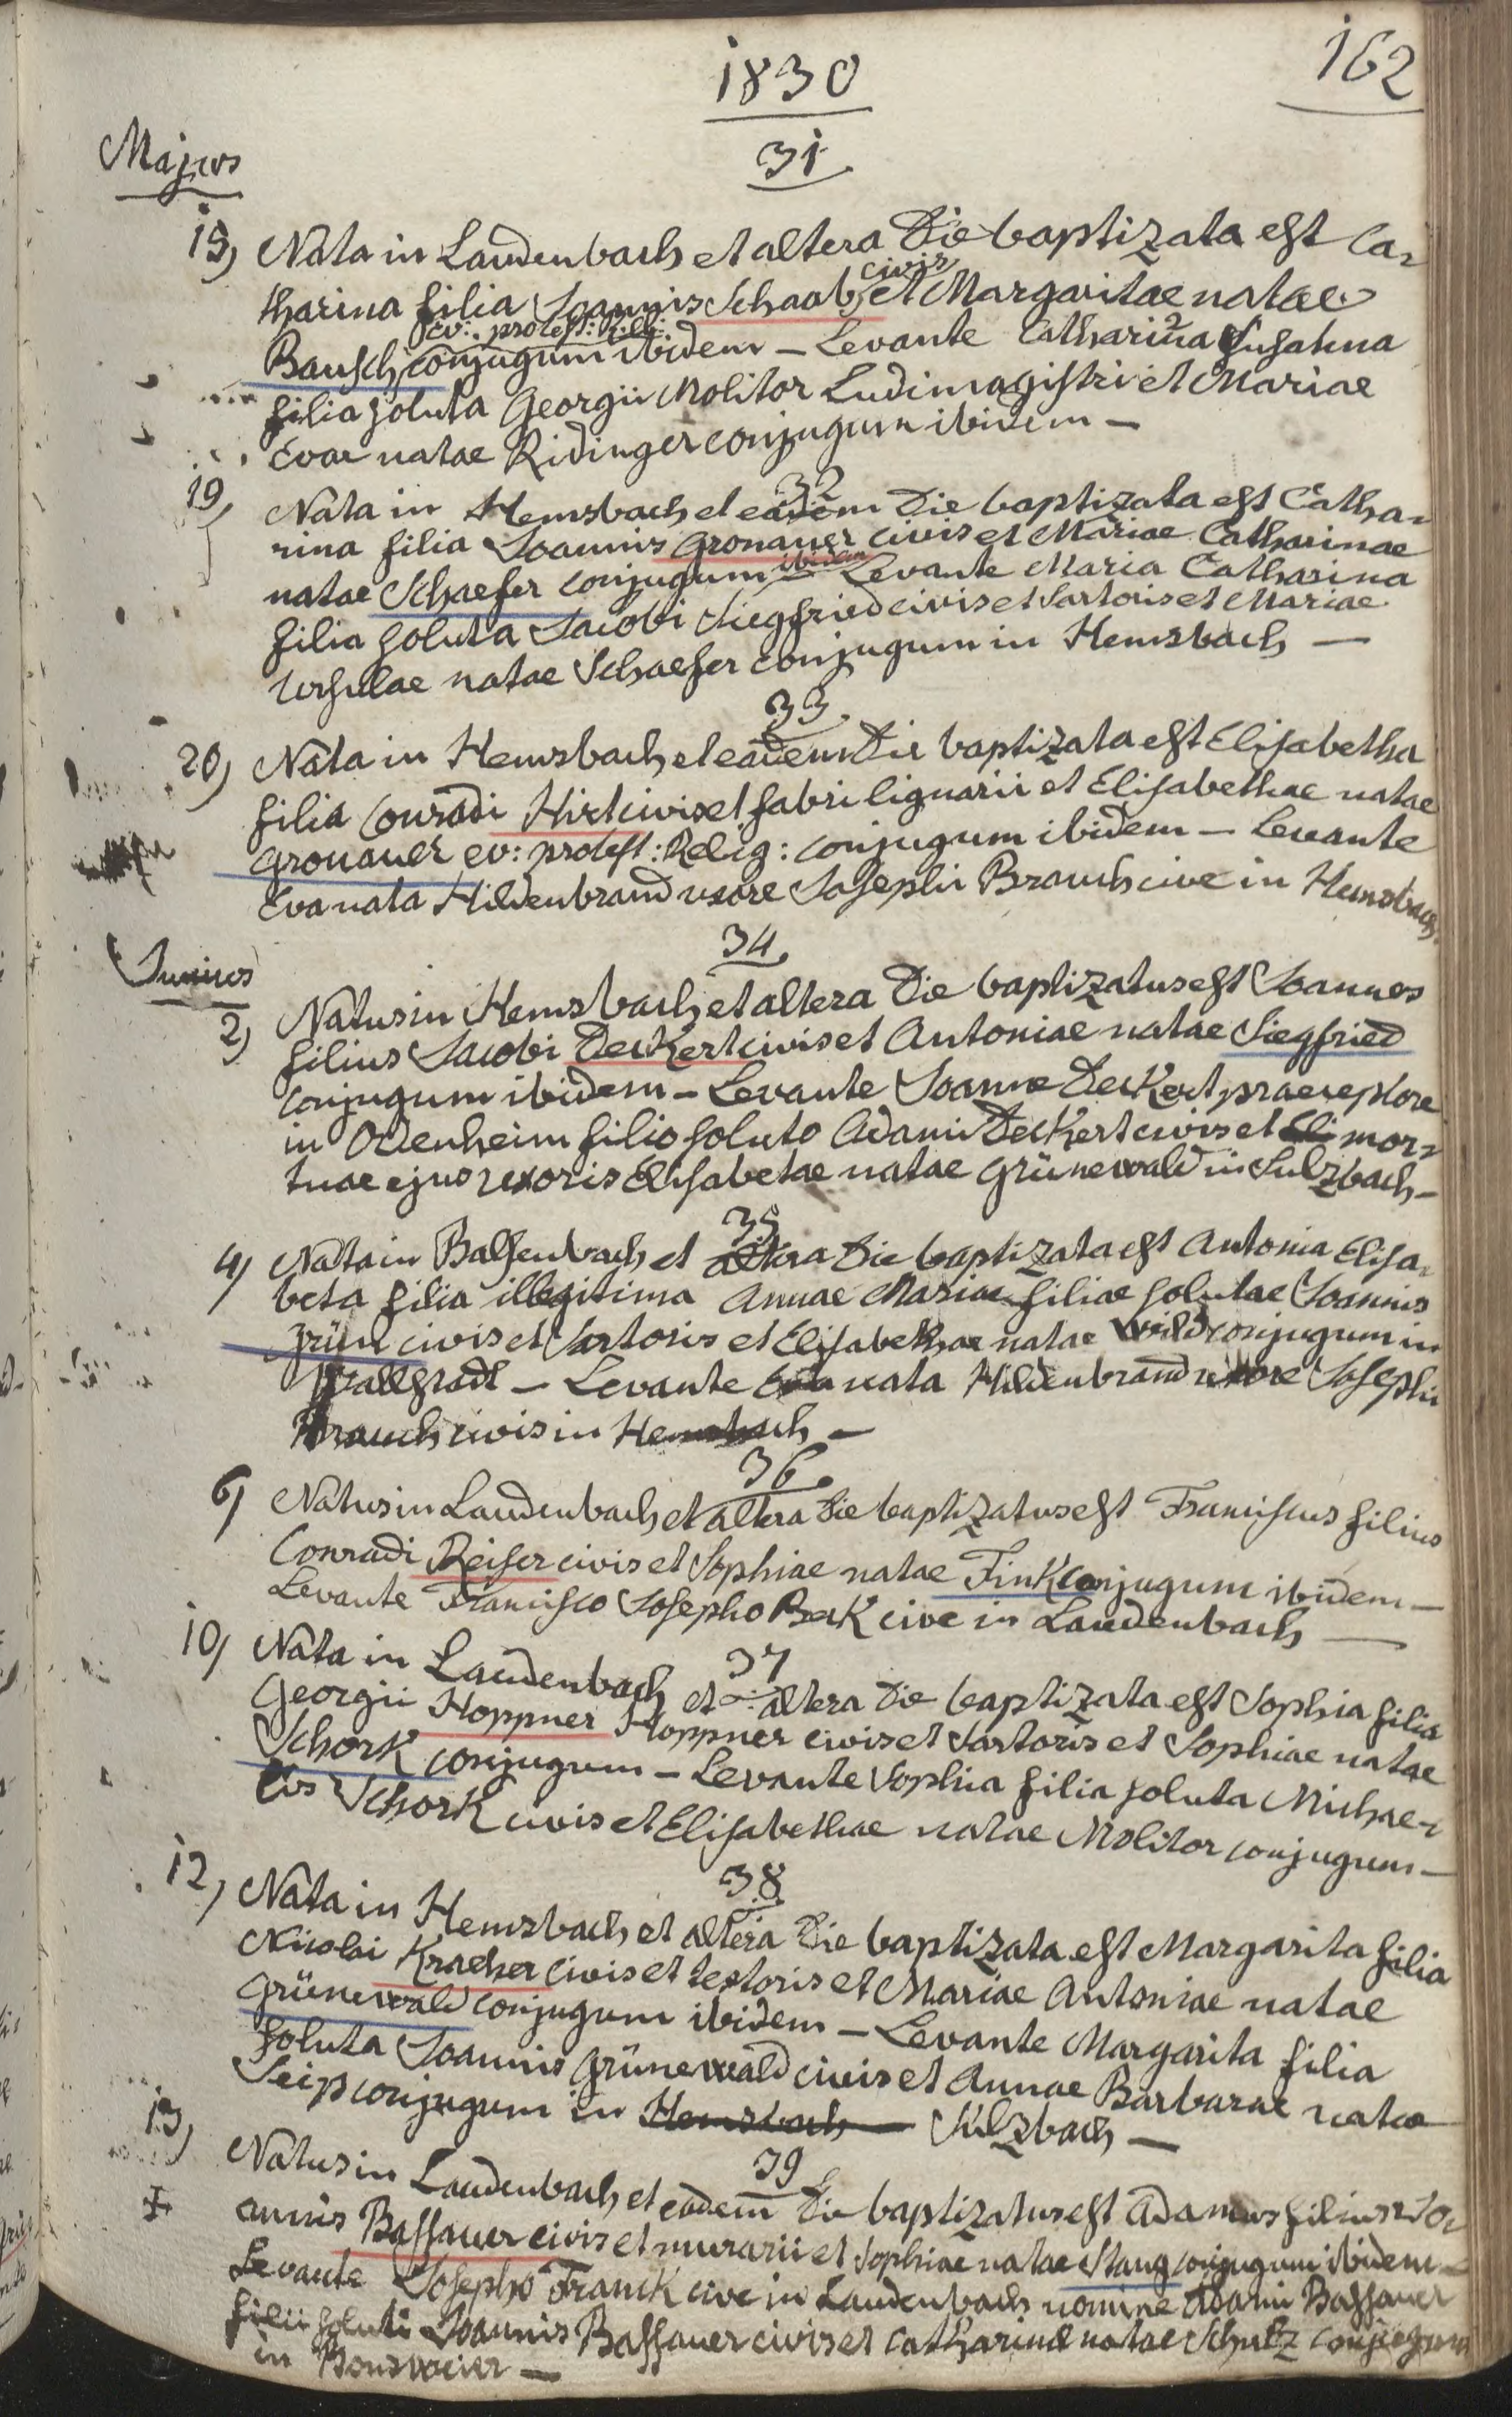 1830
162
31
Majus
15) Nata in Laudenbach et altera Die baptizata est Ca-
tharina filia Joannis Schaab civis et Margaritae natae
Bausch ev: protest: Relig: conjugum ibidem – Levante Catharina Susanna
filia soluta Georgii Molitor Ludimagistri et Mariae
Evae natae Ridinger conjugum ibidem –
32
19) Nata in Hemsbach et eadem Die baptizata est Catha-
rina filia Joannis Gronauer civis et Mariae Catharinae
natae Schaefer conjugum ibidem Levante Maria Catharina
filia soluta Jacobi Siegfried civis et Sartoris et Mariae
Ursulae natae Schaefer conjugum in Hemsbach —
33
20) Nata in Hemsbach et eadem Die baptizata est Elisabetha
filia Conradi Hirt civis et fabri lignarii et Elisabethae natae
Gronauer ev: protest: Relig: conjugum ibidem – Levante
Eva nata Hildenbrand uxore Josephi Brauch cive in Hemsbach
34
Junius
2) Natus in Hemsbach et altera Die baptizatus est Joannes
filius Jacobi Deckert civis et Antoniae natae Siegfried
conjugum ibidem – Levante Joanne Deckert praeceptore
in Odenheim filio soluto Adami Deckert civis et Eli mor-
tuae ejus uxoris Elisabetae natae Grünewald in Sulzbach –
35
4) Nata in Balsenbach et altera Die baptizata est Antonia Elisa-
beta filia illegitima Annae Mariae filiae solutae Joannis
Grün civis et Sartoris et Elisabethae natae Wild conjugum in
– Levante Eva nata Hildenbrand uxore Josephi
Brauch civis in Hemsbach –
36
6) Natus in Laudenbach et altera Die baptizatus est Franciscus filius
Conradi Reiser civis et Sophiae natae Fink conjugum ibidem –
Levante Francisco Josepho Beck cive in Laudenbach —
37
10) Nata in Laudenbach et altera Die baptizata est Sophia filia
Georgii Hoppner Hoppner civis et Sartoris et Sophiae natae
Schork conjugum – Levante Sophia filia soluta Michae-
lis Schork civis et Elisabethae natae Molitor conjugum –
38
12) Nata in Hemsbach et altera Die baptizata est Margarita filia
Nicolai Kracher civis et textoris et Mariae Antoniae natae
Grünewald conjugum ibidem – Levante Margarita filia
soluta Joannis Grünewald civis et Annae Barbarae natae
Seip conjugum in Hemsbach Sulzbach –
39
13) Natus in Laudenbach et eadem Die baptizatus est Adamus filius Jo-
annis Bassauer civis et murarii et Sophiae natae Stang conjugum ibidem –
Levante Josepho Franck cive in Laudenbach nomine Adami Bassauer
filii soluti Joannis Bassauer civis et Catharinae natae Schulz conjugum
in Bonsweier –